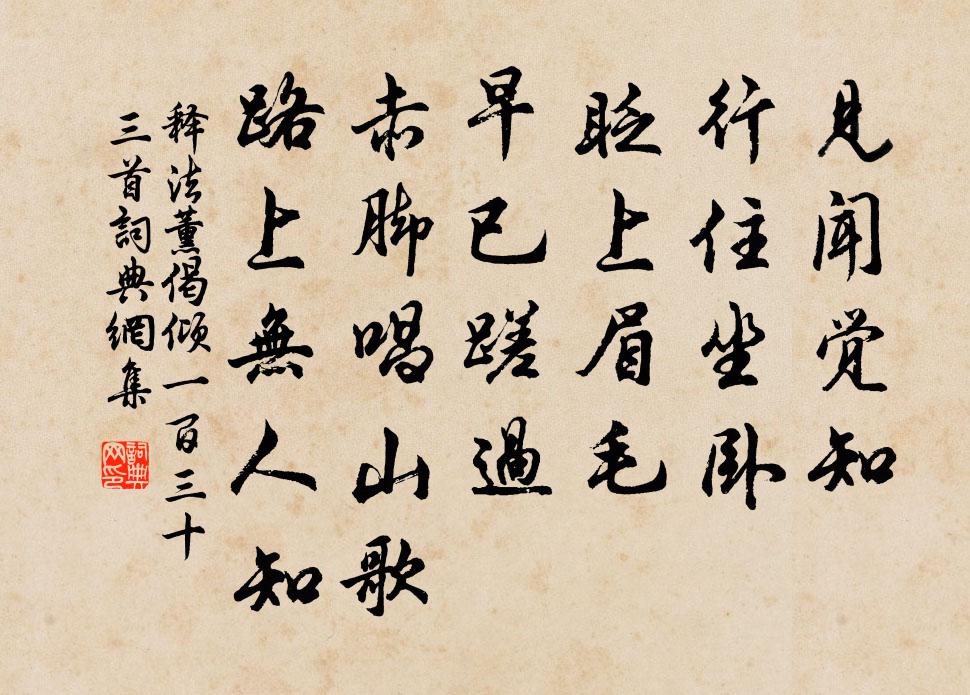 見闻觉知
行住坐卧
眨上眉毛
早已蹉過
赤脚唱山歌
路上無人知
释法薰偈倾一百三十
三首詞典網集
詞典网印